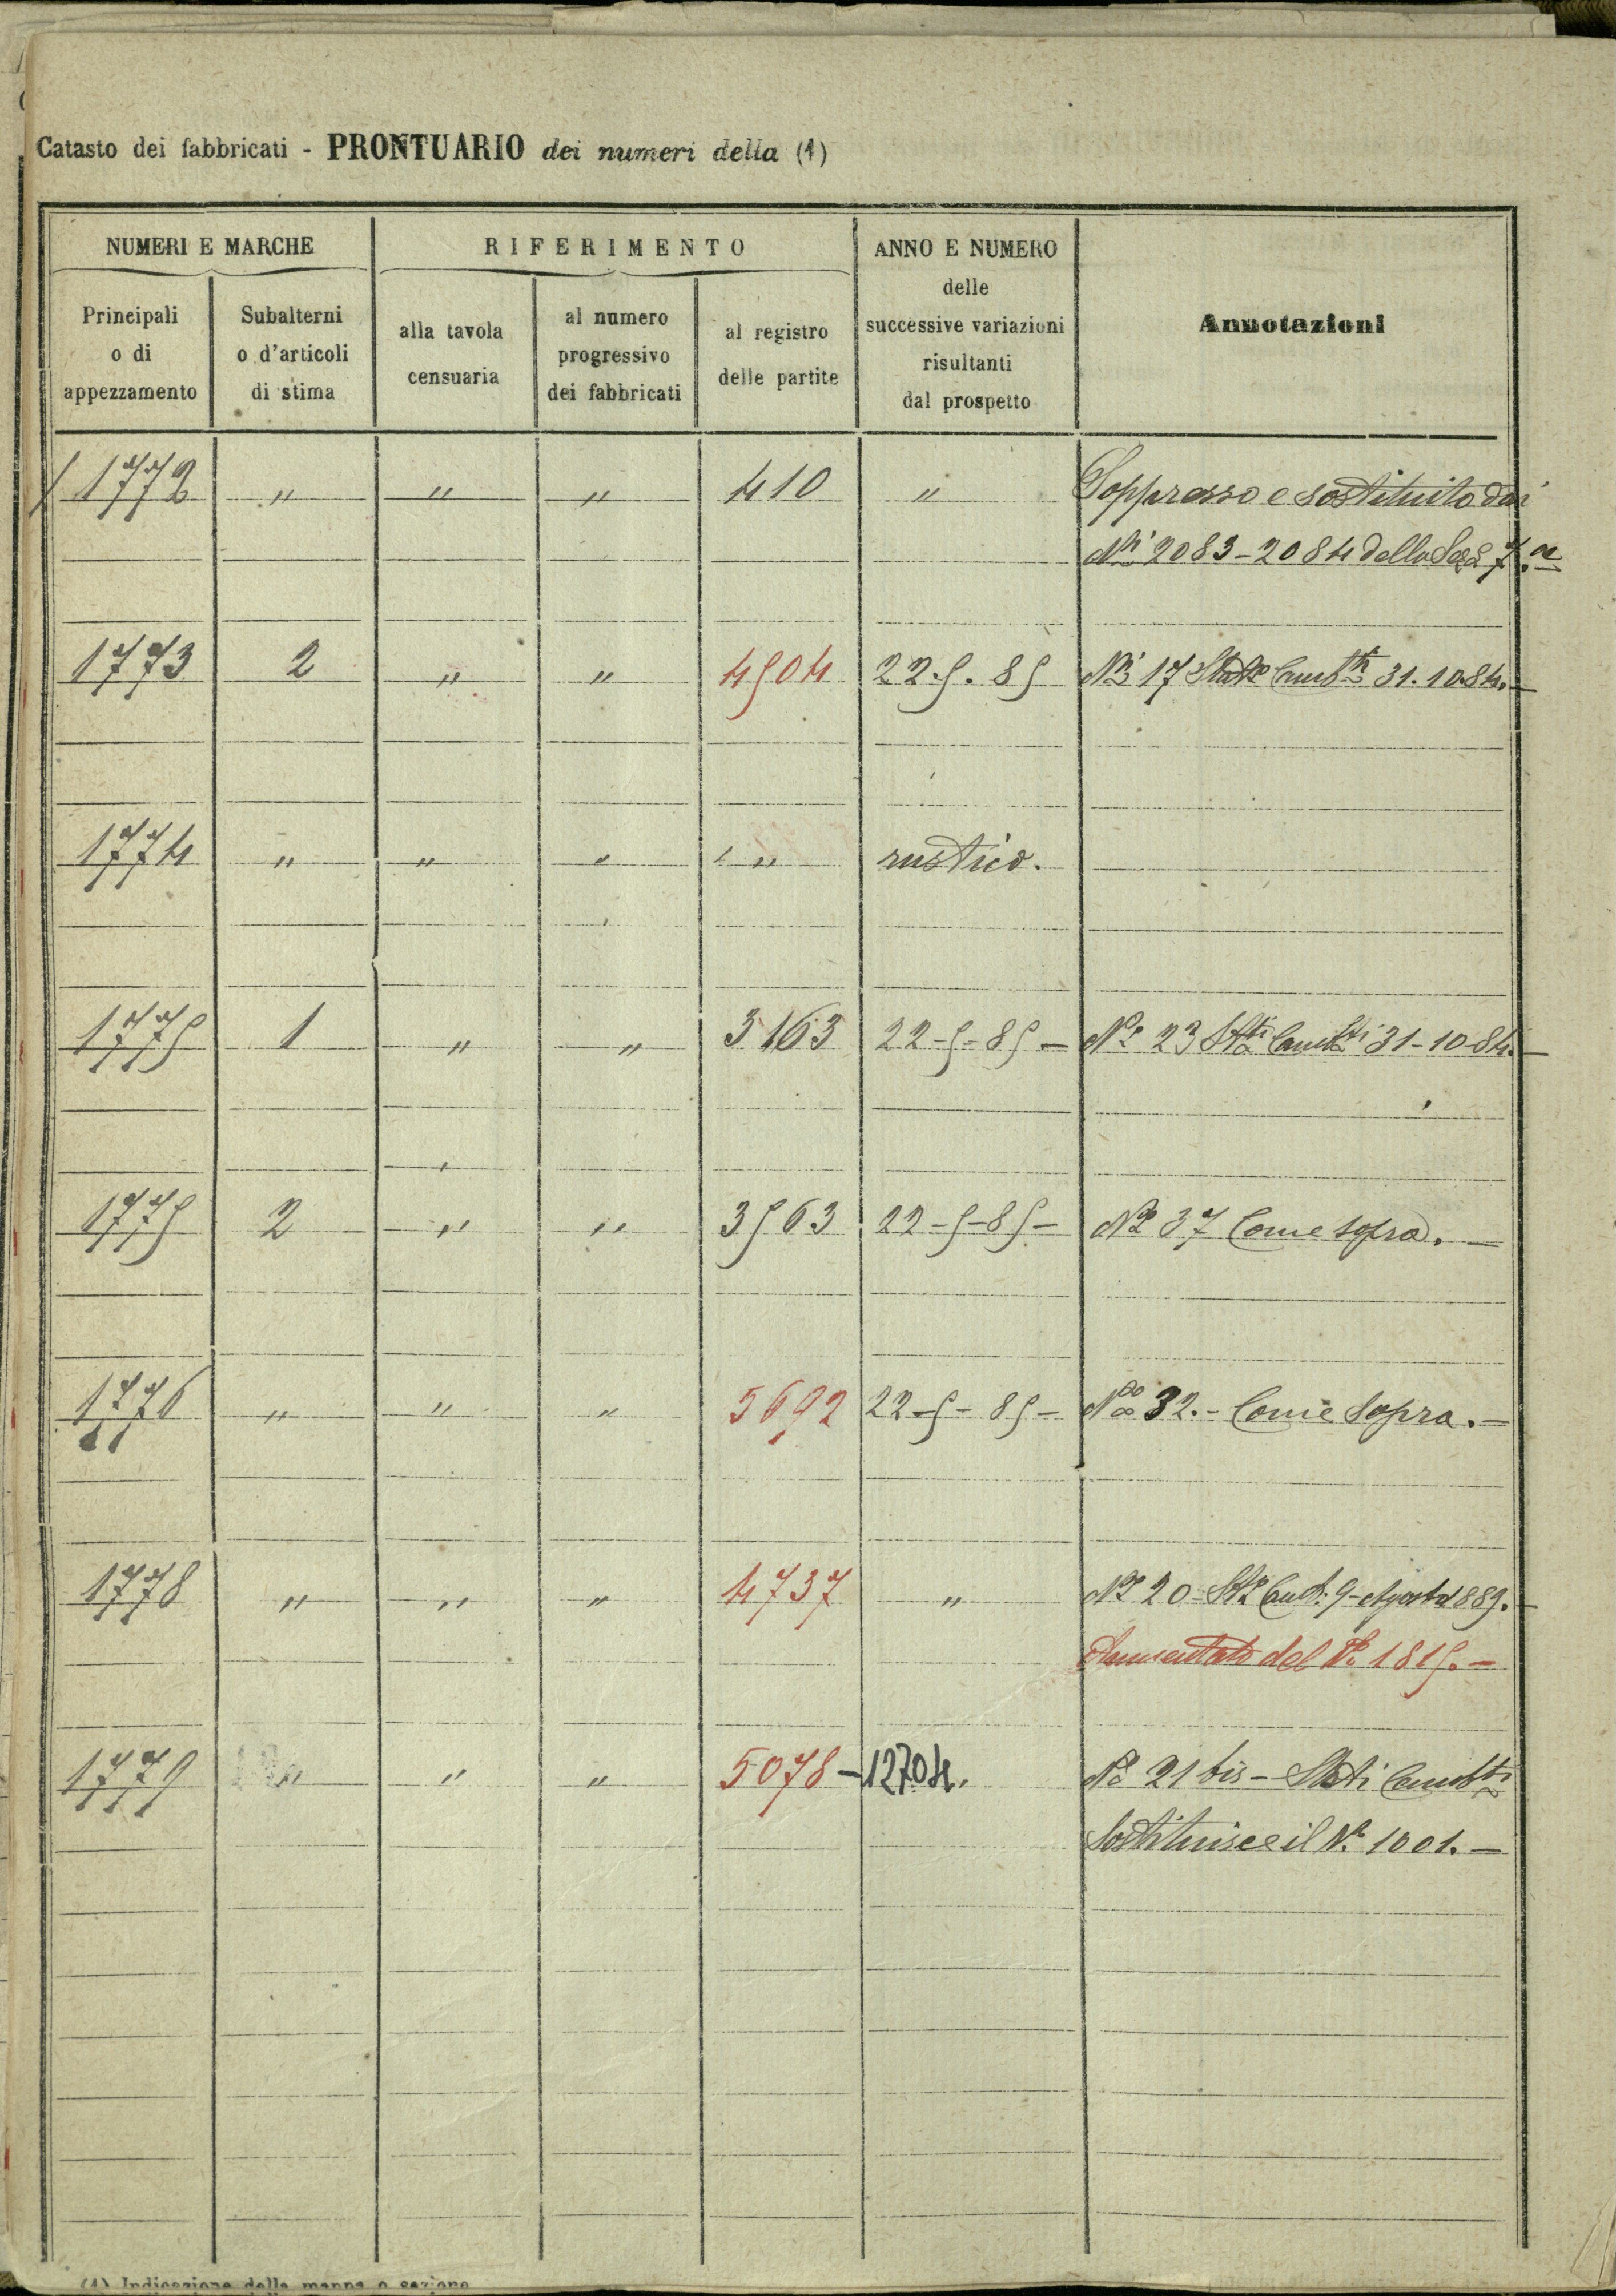 Catasto dei fabbricati - PRONTUARIO dei numeri della (1)
NUMERI E MARCHE
RIFERIMENTO
ANNO E NUMERO
delle
successive variazioni
risultanti
dal prospetto
Annotazioni
Principali
o di
appezzamento
Subalterni
o d'articoli
di stima
alla tavola
censuaria
al numero
progressivo
dei fabbricati
al registro
delle partite
1772 " " " 410 " Soppresso e sostituito dai
Ni 2083-2084 della Sez. 7.
1773 2 " " 4504 22.5.85 17 31.10.84.-
1774 " " " " rustico.
1775 1 " " 3163 22-5-85- No 23 31-10-84.-
1775 2 " " 3563 22-5-85- No 37 Come sopra.-
1776 " " " 5692 22-5-85- No 32.- Come Sopra.-
1778 " " " 4737 " No 20- 9- Agosto 1889.-
Aumentato del No 1815.-
1779 " " " 5078 -12704. No 21 bis- Stati
Sostituisce il No 1001.-
(1) Indicazione della mappa o sezione